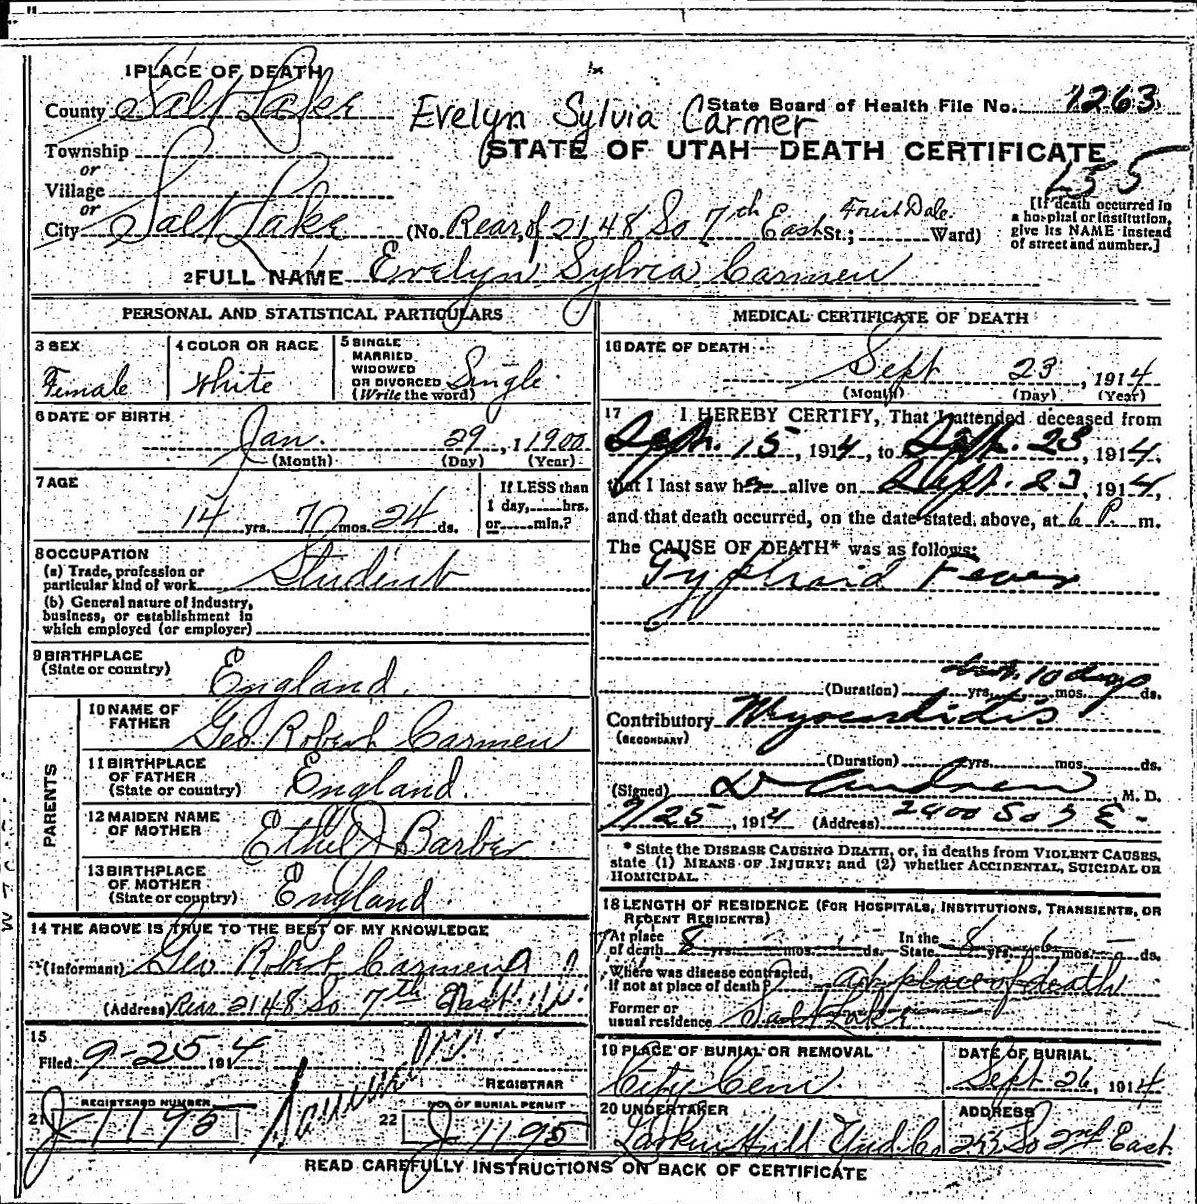 1 PLACE OF DEATH
County Salt Lake
State Board of Health File No. 1263
Evelyn Sylvia Carmer
STATE OF UTAH—DEATH CERTIFICATE
Township
or
Village
or
City Salt Lake (No. Rear of 2148 So 7th East St.; Forest Dale Ward)
[If death occurred in a hospital or institution, give its NAME instead of street and number.]
2 FULL NAME Evelyn Sylvia Carmen
PERSONAL AND STATISTICAL PARTICULARS
3 SEX
Female
4 COLOR OR RACE
White
5 SINGLE
MARRIED
WIDOWED
OR DIVORCED
(Write the word)
Single
6 DATE OF BIRTH
Jan. 29, 1 1900
(Month) (Day) (Year)
7 AGE
14 yrs. mos. 24 ds.
If LESS than
1 day, hrs.
or min.?
8 OCCUPATION
(a) Trade, profession or
particular kind of work Student
(b) General nature of industry,
business, or establishment in
which employed (or employer)
9 BIRTHPLACE
(State or country)
England.
PARENTS
10 NAME OF
FATHER
Geo. Robert Carmen
11 BIRTHPLACE
OF FATHER
(State or country)
England.
12 MAIDEN NAME
OF MOTHER
Ethel J Barber
13 BIRTHPLACE
OF MOTHER
(State or country)
England.
14 THE ABOVE IS TRUE TO THE BEST OF MY KNOWLEDGE
(Informant) Geo Robert Carmen
(Address) Rear 2148 So 7th East
15
Filed 9-25 1914
REGISTRAR
21 REGISTERED NUMBER
J 1195
22 NO OF BURIAL PERMIT
J 1195
MEDICAL CERTIFICATE OF DEATH
16 DATE OF DEATH
Sept 23, 1914
(Month) (Day) (Year)
17 I HEREBY CERTIFY, That I attended deceased from
Sept. 15, 1914, to Sept. 23, 1914,
that I last saw her alive on Sept. 23, 1914,
and that death occurred, on the date stated above, at 6 P. m.
The CAUSE OF DEATH* was as follows:
Typhoid Fever
(Duration) yrs. mos. 10 days ds.
Contributory Myocarditis
(SECONDARY)
(Duration) yrs. mos. ds.
(Signed) M. D.
9/25, 1914 (Address) 2900 So 5 E.
* State the DISEASE CAUSING DEATH, or, in deaths from VIOLENT CAUSES,
state (1) MEANS OF INJURY; and (2) whether ACCIDENTAL, SUICIDAL OR
HOMICIDAL.
18 LENGTH OF RESIDENCE (FOR HOSPITALS, INSTITUTIONS, TRANSIENTS, OR
RECENT RESIDENTS)
At place
of death 8 yrs. mos. ds. In the
State 8 yrs. 6 mos. ds.
Where was disease contracted,
if not at place of death? at place of death
Former or
usual residence Salt Lake
19 PLACE OF BURIAL OR REMOVAL
City Cem.
DATE OF BURIAL
Sept 26, 1914
20 UNDERTAKER
Larkin Hull Und. Co.
ADDRESS
So 2nd East
READ CAREFULLY INSTRUCTIONS ON BACK OF CERTIFICATE